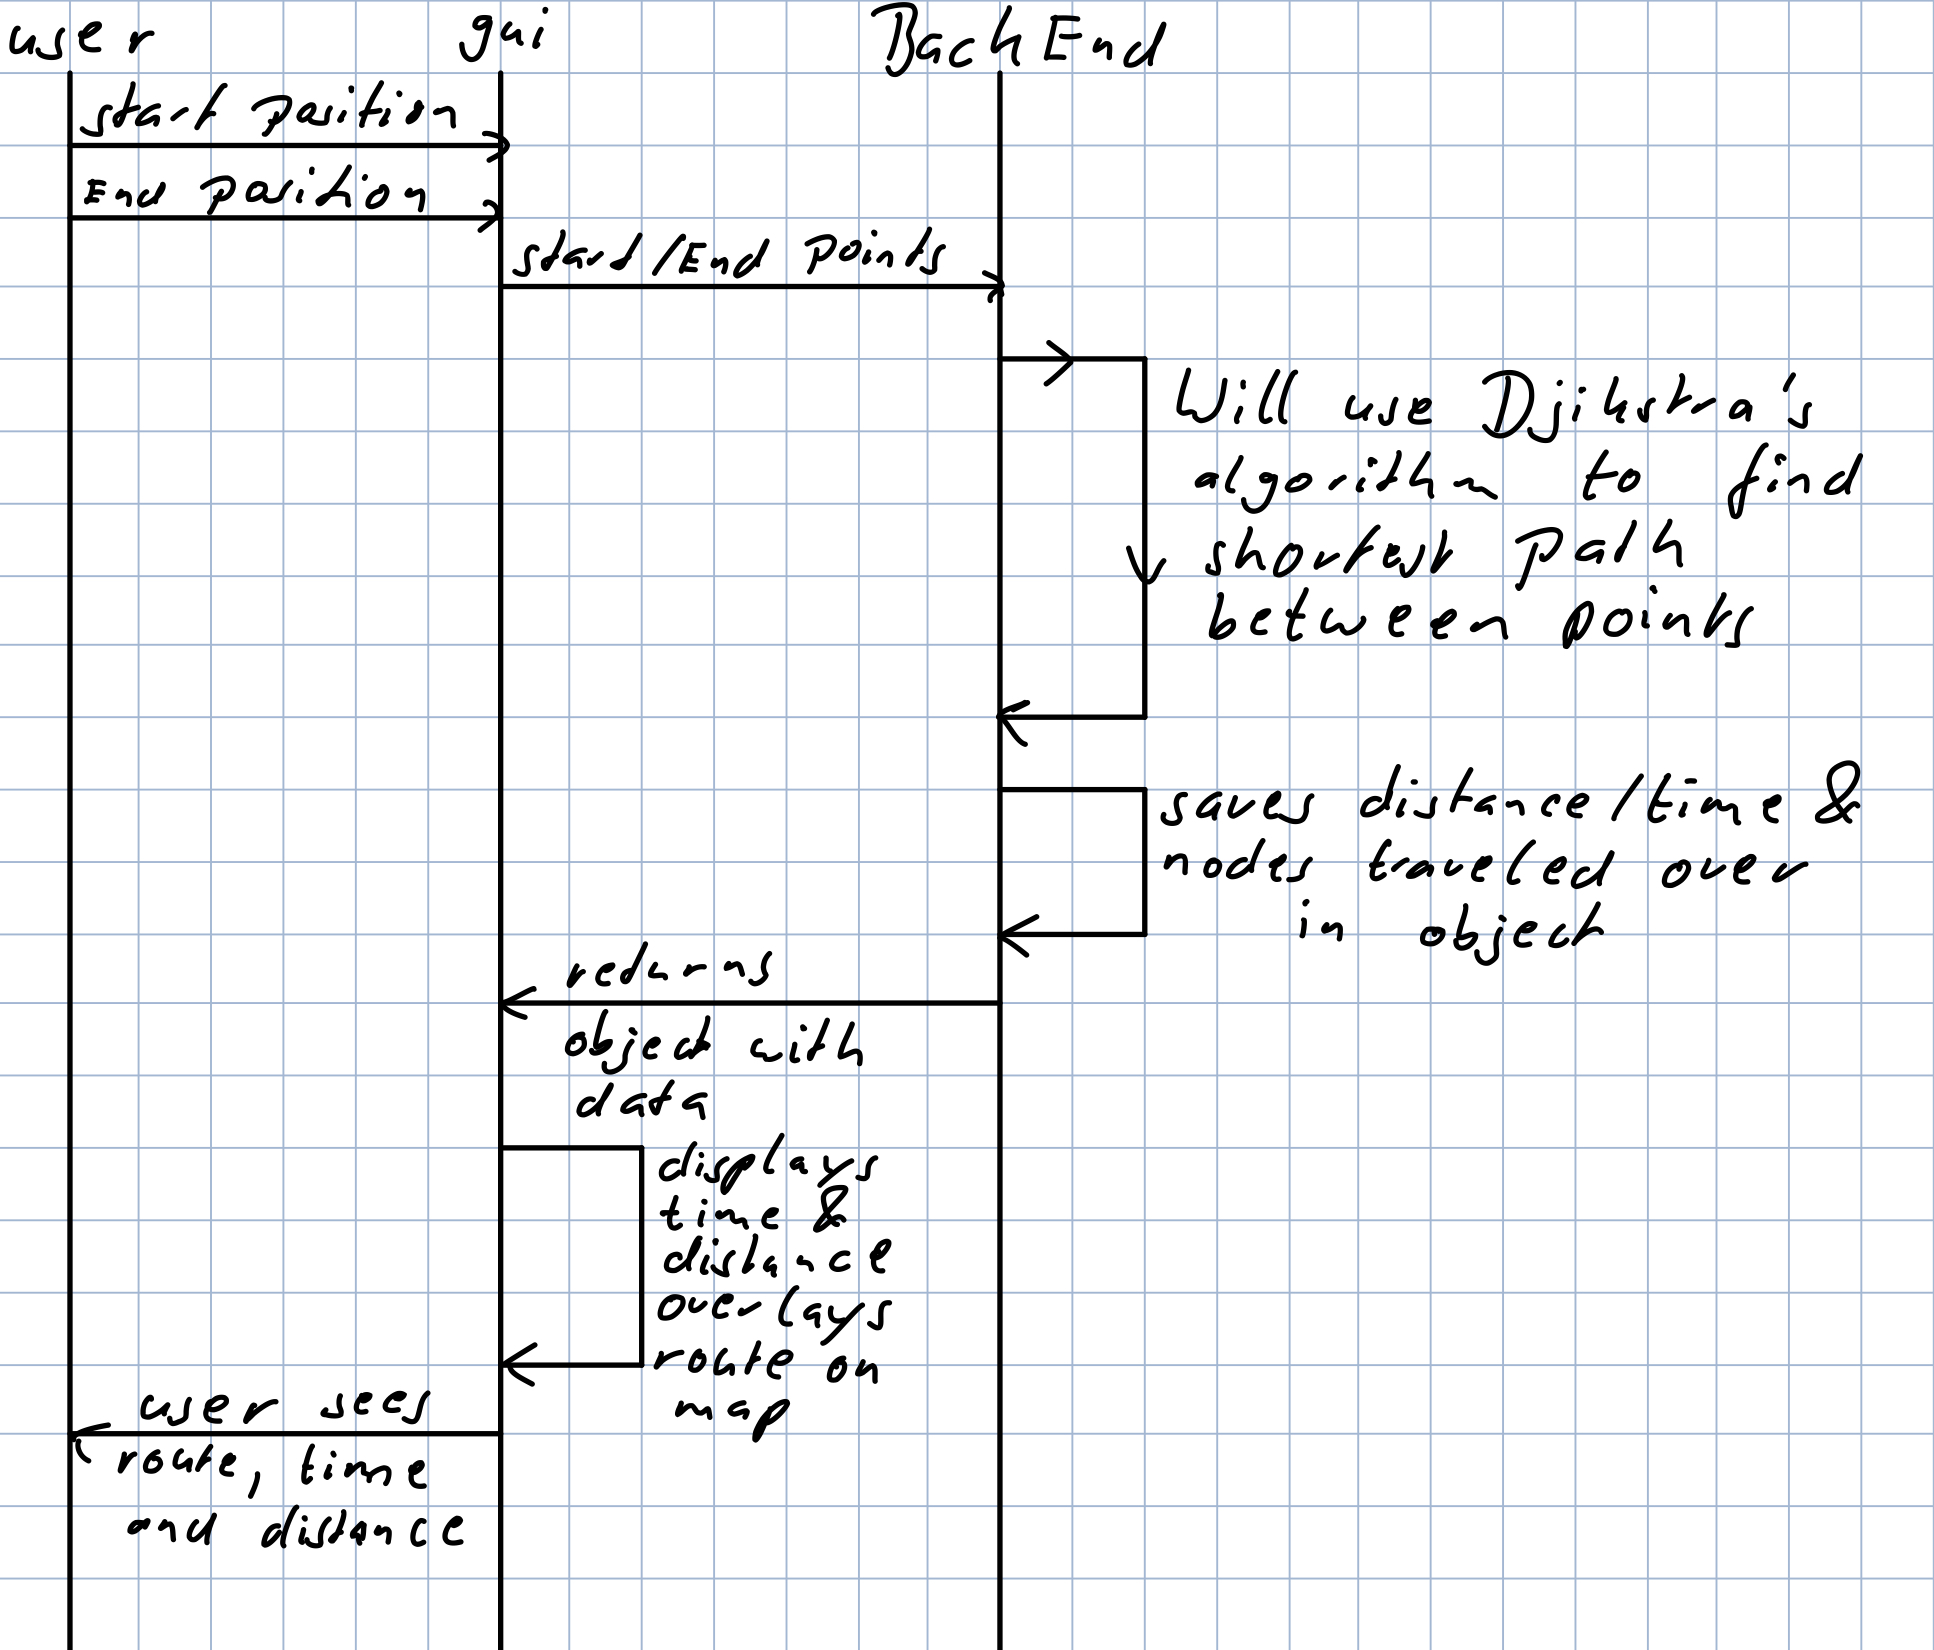 user gui Back End
start position
End position
start/End points
Will use Djikstra's
algorithm to find
shortest path
between points
saves distance/time &
nodes traveled over
in object
returns
object with
data
displays
time &
distance
overlays
route on
map
user sees
route, time
and distance